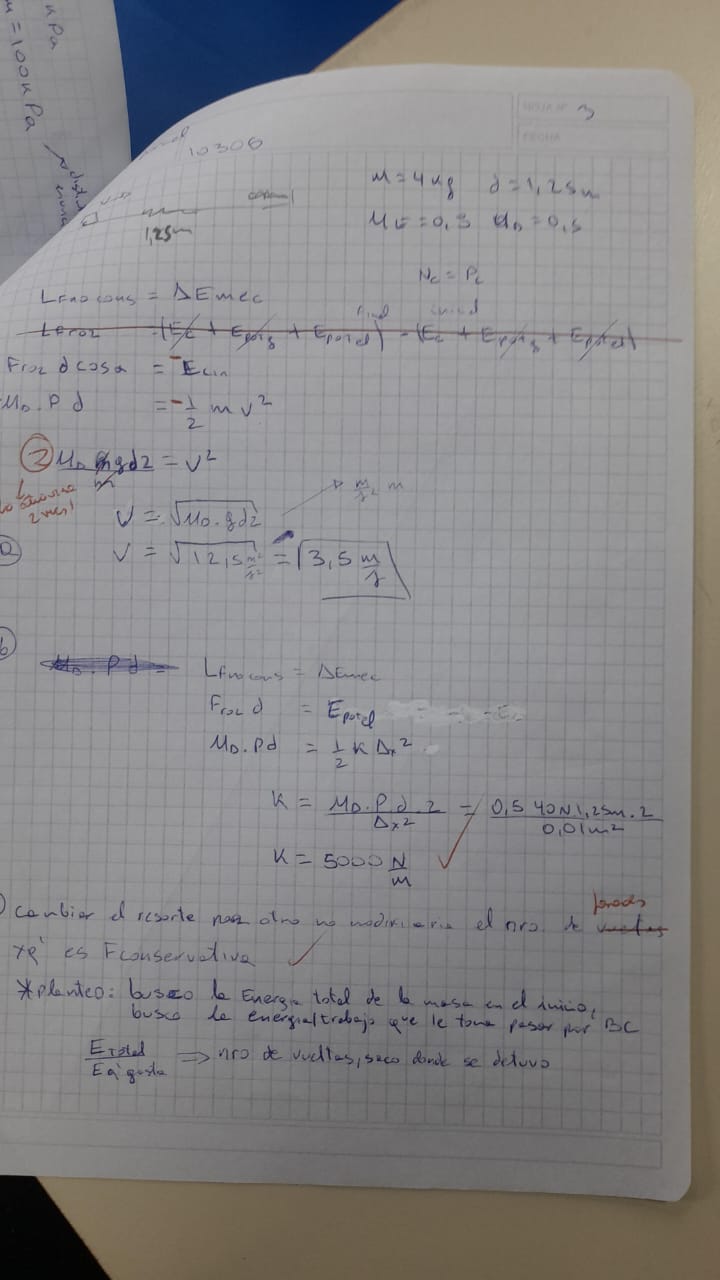 kPa
= 100 kPa
HOJA Nº 3
FECHA
10306
m = 4 kg d = 1,25m
1,25m
μE = 0,3 μD = 0,5
Nc = Pc
LFno cons = ΔEmec
final inicial
LFroz = (Ec + Epotg + Epotel) - (Ec + Epotg + Epotel)
Froz d cosα = - Ecin
μD . P d = - 1/2 m v²
2 μD mgd2 / m = v²
V = √μD.gd2 → m/s² m
2 veces
a) V = √12,5 m²/s² = 3,5 m/s
b) μD . P d = LFno cons = ΔEmec
Froz d = Epotel
μD . Pd = 1/2 K Δx²
K = μD . P d . 2 / Δx² = 0,5 40N 1,25m . 2 / 0,01m²
K = 5000 N/m
cambiar el resorte por otro no modificaria el nro. de vueltas
xq' es Fconservativa
*planteo: busco la Energia total de la masa en el inicio,
busco la energia/trabajo que le toma pasar por BC
ETotal / E q' gasta ⟹ nro de vueltas, saco donde se detuvo